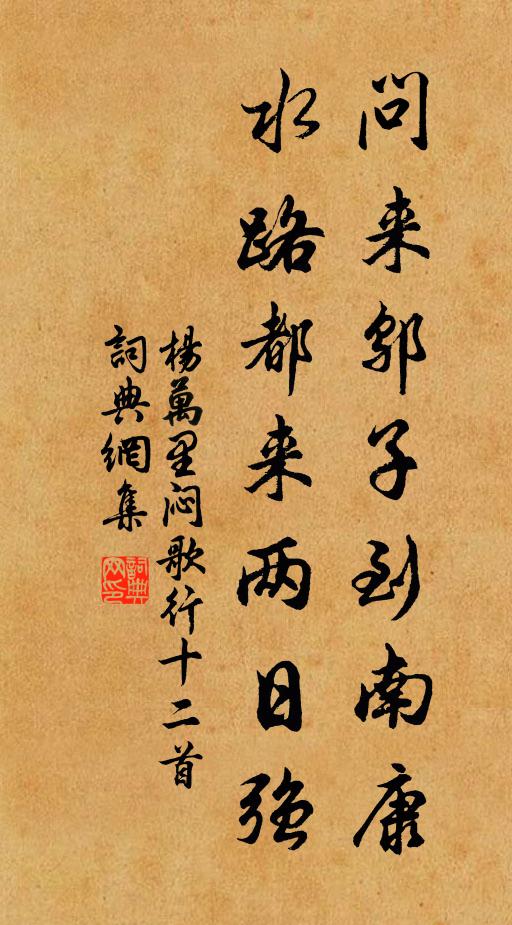 问来鄔子到南康
水路都来两日强
楊萬里闷歌行十二首
詞典網集
詞典网印